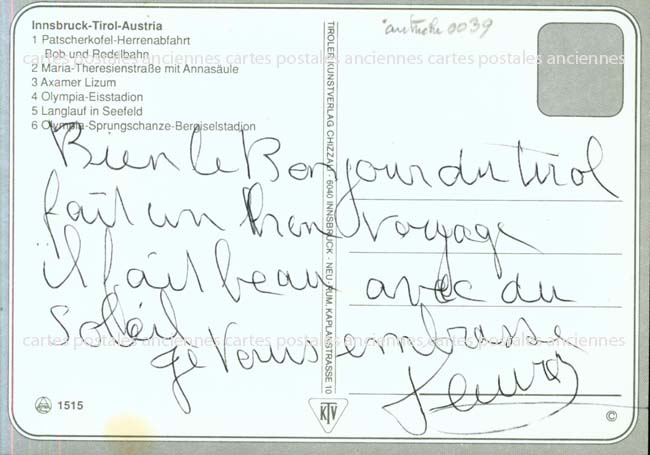 Innsbruck-Tirol-Austria
1 Patscherkofel-Herrenabfahrt
Bob und Rodelbahn
cartes postales anciennes cartes postales anciennes cartes postales anciennes
2 Maria-Theresienstraße mit Annasäule
3 Axamer Lizum
4 Olympia-Eisstadion
5 Langlauf in Seefeld
6 Olympia-Sprungschanze-Bergiselstadion
autriche 0039
TIROLER KUNSTVERLAG CHIZZALI · 6040 INNSBRUCK - NEU RUM, KAPLANSTRASSE 10
Bien le Bonjour du tirol
fait un bon voyage
il fait beau avec du
soleil
cartes postales anciennes cartes postales anciennes cartes postales anciennes
ge vous embrasse
1515
KTV
©